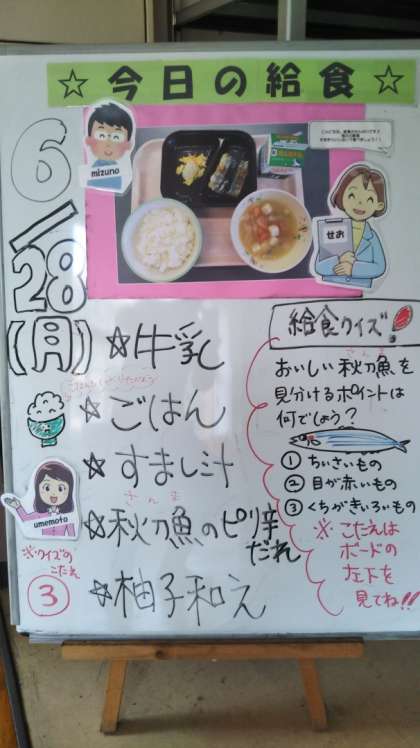 ☆今日の給食☆
mizuno
せお
6/28
(月)
☆牛乳
☆ごはん
☆すまし汁
さんま
☆秋刀魚のピリ辛
だれ
☆柚子和え
umemoto
※クイズの
こたえ
③
給食クイズ!
さんま
おいしい秋刀魚を
見分けるポイントは
何でしょう?
①ちいさいもの
②目が赤いもの
③くちがきいろいもの
※こたえは
ボードの
左下を
見てね!!